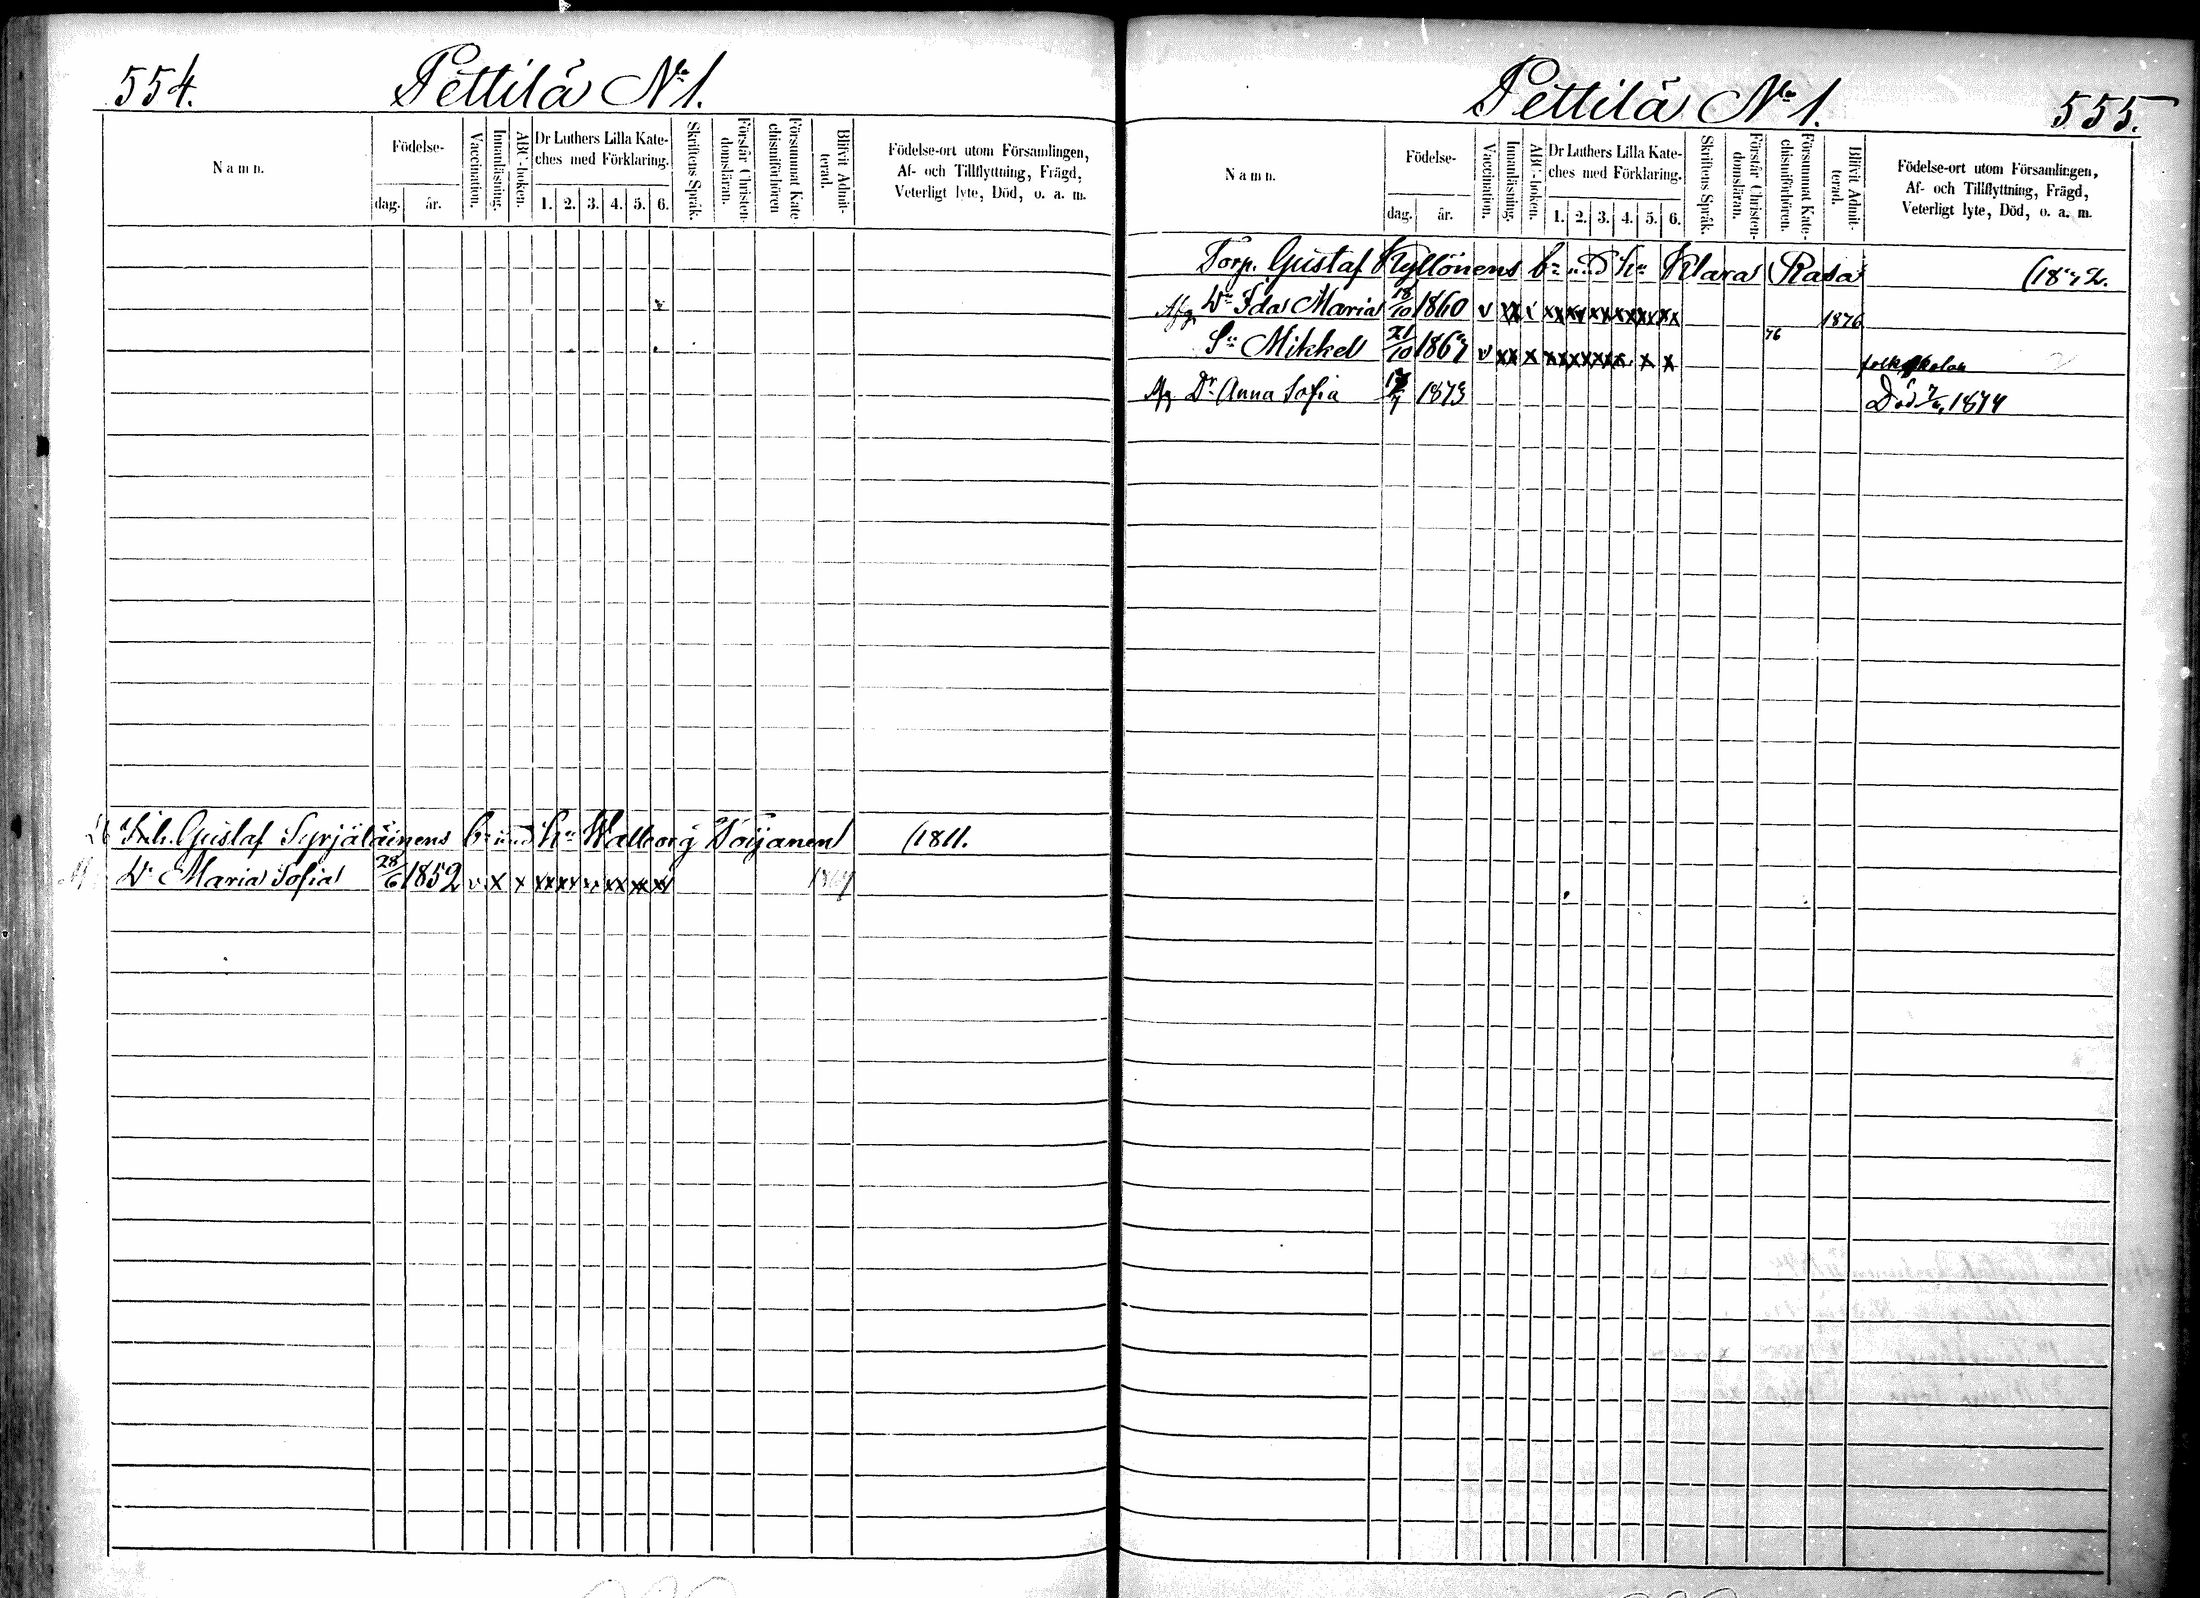 554.
Pettilä No 1.
Namn.
Födelse-
dag.
år.
Vaccination.
Innanläsning.
ABC-boken.
Dr Luthers Lilla Kate-
ches med Förklaring.
1. 2. 3. 4. 5. 6.
Skriftens Språk.
Förstår Christen-
domsläran.
Försummat Kate-
chismiförhören
Blifvit Admit-
terad.
Födelse-ort utom Församlingen,
Af- och Tillflyttning, Frägd,
Veterligt lyte, Död, o. a. m.
Gustaf Syrjäläinens bn und hn Walborg Toijanen (1811.
Dr Maria Sofia 28/6 1852 v x x xx xx xx xx xx xx
Pettilä No 1.
555.
Namn.
Födelse-
dag.
år.
Vaccination.
Innanläsning.
ABC-boken.
Dr Luthers Lilla Kate-
ches med Förklaring.
1. 2. 3. 4. 5. 6.
Skriftens Språk.
Förstår Christen-
domsläran.
Försummat Kate-
chismiförhören.
Blifvit Admit-
terad.
Födelse-ort utom Församlingen,
Af- och Tillflyttning, Frägd,
Veterligt lyte, Död, o. a. m.
Torp. Gustaf Kyllönens bn und hn Klara Rasa
Afg. Dr Ida Maria 18/10 1860 v xx v xx xx xx xx xx xx 1876
Sn Mikkel 21/10 1867 v xx x xx xx xx xx x x 76 folkskolan
Afg. Dr Anna Sofia 1873 Död 1874